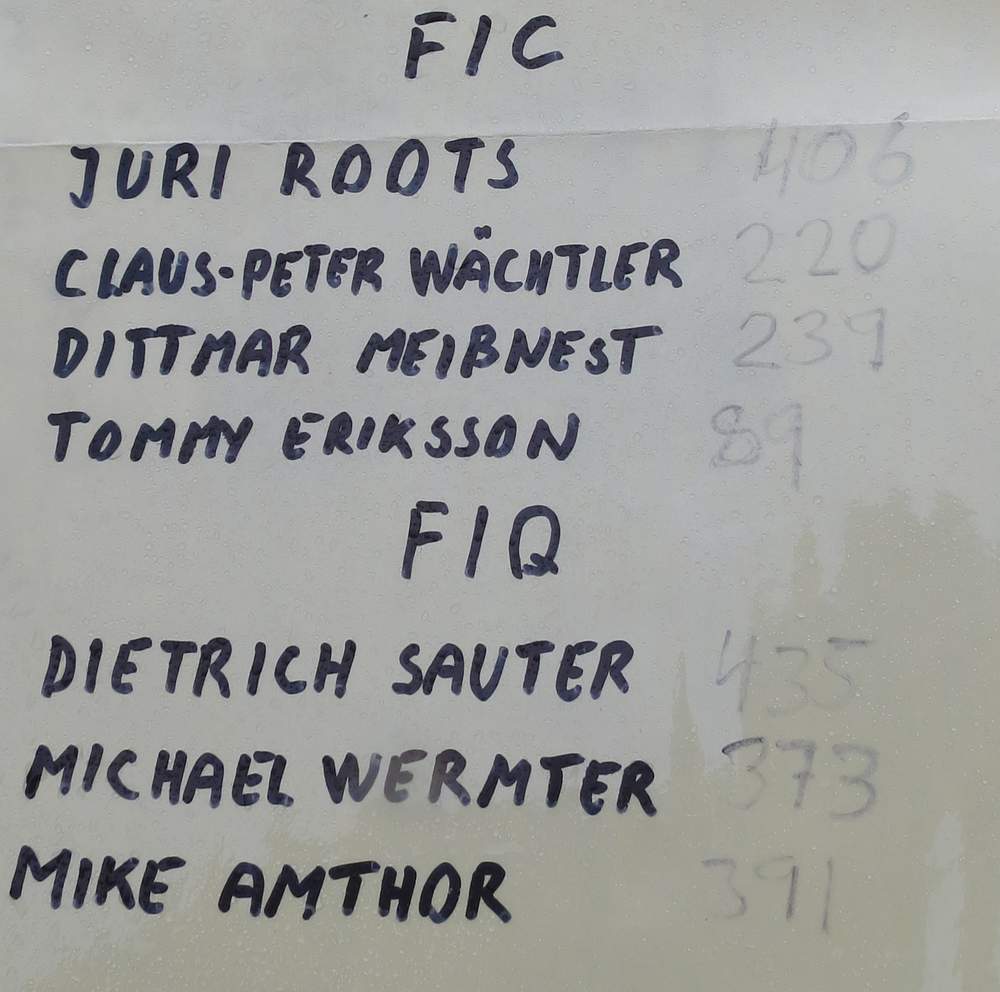 FIC
JURI ROOTS 406
CLAUS-PETER WÄCHTLER 220
DITTMAR MEIßNEST 239
TOMMY ERIKSSON 89
FIQ
DIETRICH SAUTER 435
MICHAEL WERMTER 373
MIKE AMTHOR 391